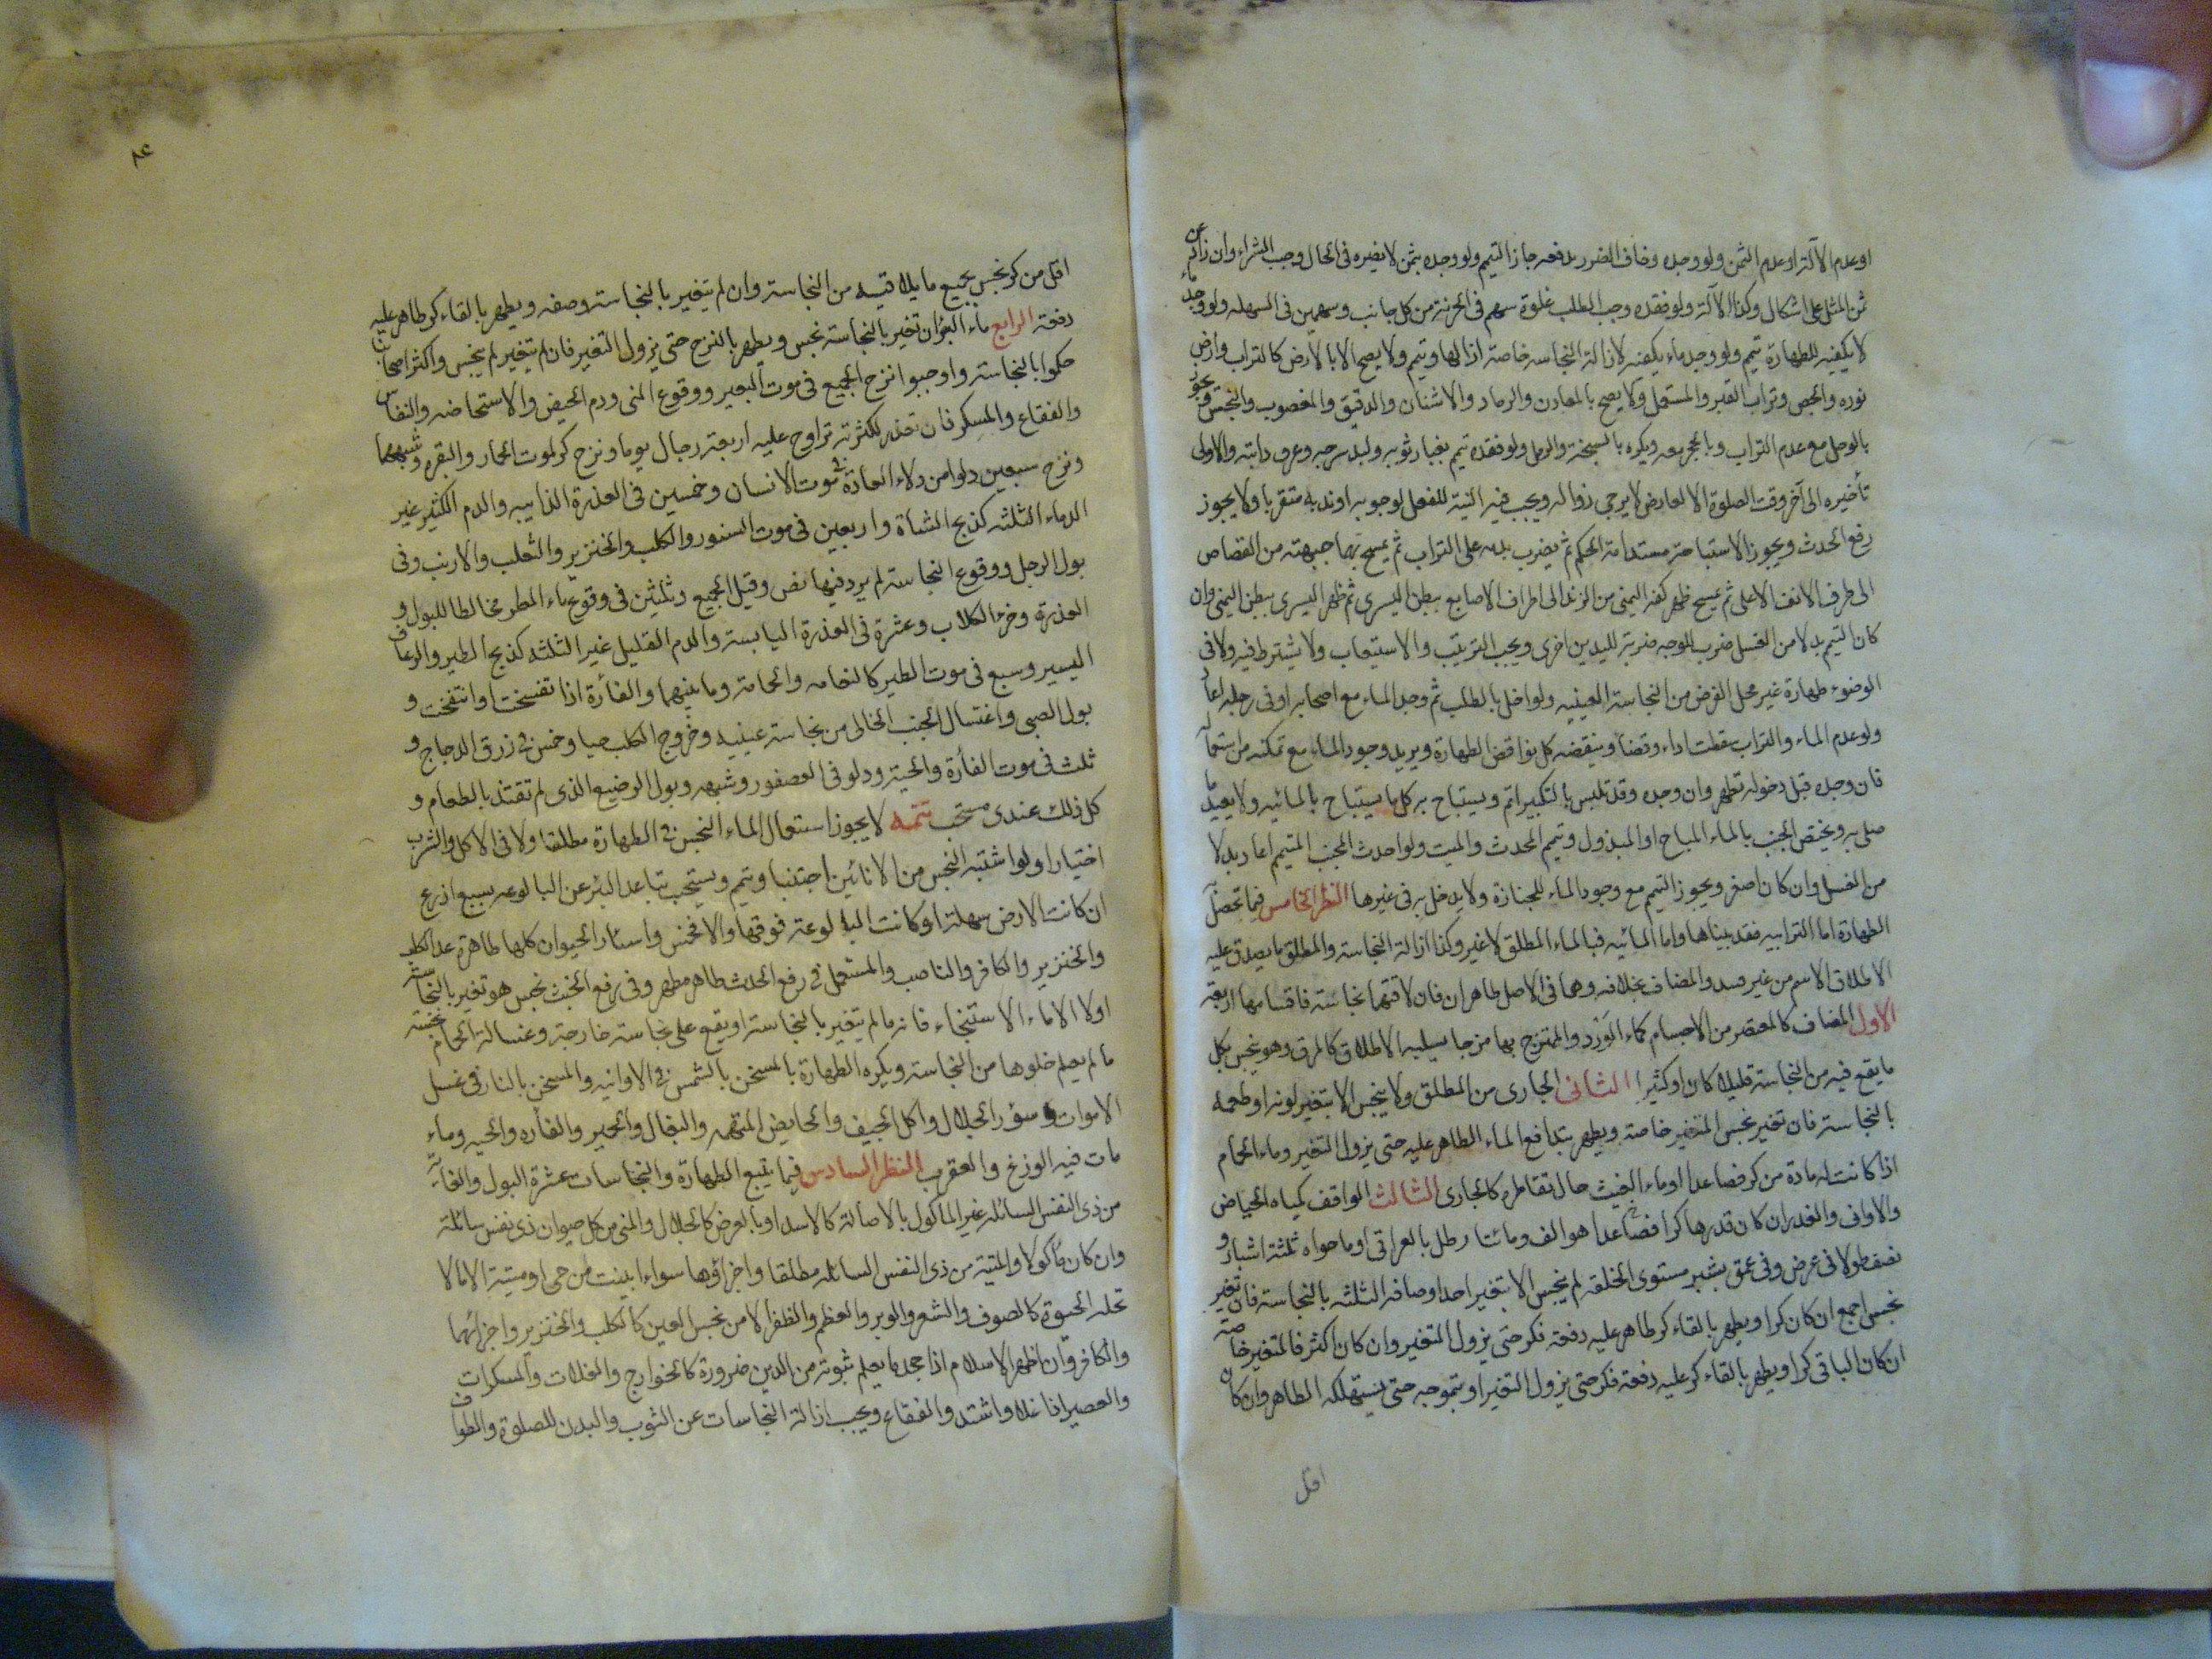 او عدم الآلة او عدم الثمن ولو وجده وخاف الضرر بدفعه جاز التيمم ولو وجده بثمن لا يضره فى الحال وجب الشراء وان زاد عن
ثمن المثل على اشكال وكذا الآلة ولو فقده وجب الطلب غلوة سهم فى الحزنة من كل جانب وسهمين فى السهله ولو وجد ماء
لا يكفيه للطهارة تيمم ولو وجد ماء يكفيه لازالة النجاسه خاصة ازالها وتيمم ولا يصح الا بالارض كالتراب وارض
نوره والجص وتراب القبر والمستعمل ولا يصح بالمعادن والرماد والاشنان والدقيق والمغصوب والنجس ويجوز
بالوحل مع عدم التراب وبالحجر معه ويكره بالسبخة والرمل ولو فقده تيمم بغبار ثوبه ولبد سرجه وعرف دابته والاولى
تأخيره الى آخر وقت الصلوة الا لعارض لا يرجى زواله ويجب فيه النية للفعل لوجوبه او ندبه متقربا ولا يجوز
رفع الحدث ويجوز الاستباحة مستدامة الحكم ثم يضرب بيديه على التراب ثم يمسح بهما جبهته من القصاص
الى طرف الانف الاعلى ثم يمسح ظهر كفه اليمنى من الزند الى اطراف الاصابع ببطن اليسرى ثم ظهر اليسرى ببطن اليمنى وان
كان التيمم بدلا من الغسل ضرب للوجه ضربة لليدين اخرى ويجب الترتيب والاستيعاب ولا يشترط فيه ولا فى
الوضوء طهارة غير محل الفرض من النجاسة العينيه ولو اخل بالطلب ثم وجد الماء مع اصحابه او فى رحله اعاد
ولو عدم الماء والتراب سقطت اداء وقضاء وينقضه كل نواقض الطهارة ويزيد وجود الماء مع تمكنه من استعماله
فان وجده قبل دخوله تطهر وان وجده وقد تلبس بالتكبير اتم ويستباح به كل ما يستباح بالمائيه ولا يعيد ما
صلى به ويختص الجنب بالماء المباح او المبذول وتيمم المحدث والميت ولو احدث المجنب المتيمم اعاد بدلا
من الغسل وان كان اصغر ويجوز التيمم مع وجود الماء للجنازة ولا يدخل به فى غيرها النظر الخامس فيما تحصل به
الطهارة اما الترابيه فقد بيناها واما المائيه فبالماء المطلق لا غير وكذا ازالة النجاسة والمطلق ما يصدق عليه
الاطلاق الاسم من غير قيد والمضاف بخلافه وهما فى الاصل طاهران فان لاقتهما نجاسة فاقسامها اربعة
الاول المضاف كالمعتصر من الاجسام كماء الورد والممتزج بها مزجا يسلبه الاطلاق كالمرق وهو ينجس بكل
ما يقع فيه من النجاسة قليلا كان او كثيرا الثانى الجارى من المطلق ولا ينجس الا بتغير لونه او طعمه
بالنجاسة فان تغير نجس المتغير خاصة ويطهر بتدافع الماء الطاهر عليه حتى يزول التغير وماء الحمام
اذا كانت له مادة من كر فصاعدا وماء الغيث حال تقاطره كالجارى الثالث الواقف كمياه الحياض
والاوانى والغدران كان قدرها كرا فصاعدا هو الف ومائتا رطل بالعراقى او ما حواه ثلثة اشبار و
نصف طولا فى عرض وفى عمق بشبر مستوى الخلقة لم ينجس الا بتغير احد اوصافه الثلثه بالنجاسة فان تغير
نجس اجمع ان كان كرا ويطهر بالقاء كر طاهر عليه دفعة فكر حتى يزول المتغير وان كان اكثر فالمتغير خاصة
ان كان الباقى كرا ويطهر بالقاء كر عليه دفعة فكر حتى يزول التغير او بتموجه حتى يستهلكه الطاهر وان كان
اقل
٨٤
اقل من كر نجس بجميع ما يلاقيه من النجاسة وان لم يتغير بالنجاسة وصفه ويطهر بالقاء كر طاهر عليه
دفعة الرابع ماء البئر ان تغير بالنجاسة نجس ويطهر بالنزح حتى يزول التغير فان لم يتغير لم ينجس واكثر اصحابنا
حكموا بالنجاسة واوجبوا نزح الجميع فى موت البعير ووقوع المنى ودم الحيض والاستحاضه والنفاس
والفقاع والمسكر فان تعذر لكثرته تراوح عليه اربعة رجال يوما ونزح كر لموت الحمار والبقره وشبههما
ونزح سبعين دلوا من دلاء العادة فى موت الانسان وخمسين فى العذرة الذايبه والدم الكثير غير
الدماء الثلثه كذبح الشاة واربعين فى موت السنور والكلب والخنزير والثعلب والارنب وفى
بول الرجل ووقوع النجاسة لم يرد فيها نص وقيل الجميع وثلثين فى وقوع ماء المطر مخالطا للبول و
العذرة وخرء الكلاب وعشرة فى العذرة اليابسة والدم القليل غير الثلثه كذبح الطير والرعاف
اليسير وسبع فى موت الطير كالنعامه والحمامة وما بينهما والفأرة اذا تفسخت وانتفخت و
بول الصبى واغتسال الجنب الخالى من نجاسة عينيه وخروج الكلب حيا وخمس فى زرق الدجاج و
ثلث فى موت الفأرة والحية ودلو فى العصفور وشبهه وبول الرضيع الذى لم تقتذ بالطعام و
كل ذلك عندى مستحب تتمه لا يجوز استعمال الماء النجس فى الطهارة مطلقا ولا فى الاكل والشرب
اختيارا ولو اشتبه النجس من الانائين اجتنبا وتيمم ويستحب تباعد البئر عن البالوعه بسبع اذرع
ان كانت الارض سهلة او كانت البالوعة فوقها والا فخمس واسئار الحيوان كلها طاهرة عدا الكلب
والخنزير والكافر والناصب والمستعمل فى رفع الحدث طاهر مطهر وفى رفع الخبث نجس هو تغير بالنجاسة
اولا الا ماء الاستنجاء فانه ما لم يتغير بالنجاسة او يقع على نجاسة خارجة وغسالة الحمام نجسة
ما لم يعلم خلوها من النجاسة ويكره الطهارة بالمسخن بالشمس فى الاوانيه والمسخن بالنار فى غسل
الاموات وسؤر الجلال واكل الجيف والحايض المتهمه والبغال والحمير والفأره والحيه وماء
مات فيه الوزغ والعقرب النظر السادس فيما يتبع الطهارة والنجاسات عشرة البول والغايط
من ذى النفس السائله غير المأكول بالاصالة كالاسد او بالعرض كالجلال والمنى من كل حيوان ذى نفس سائلة
وان كان مأكولا والميتة من ذى النفس السائله مطلقا واجزاؤها سواء ابينت من حى او ميتة الا ما لا
تحله الحيوة كالصوف والشعر والوبر والعظم والظفر الا من نجس العين كالكلب والخنزير واجزائهما
والكافر وان اظهر الاسلام اذا جحد ما يعلم ثبوته من الدين ضرورة كالخوارج والغلات والمسكرات
والعصير اذا غلا واشتد والفقاع ويجب ازالة النجاسات عن الثوب والبدن للصلوة والطواف